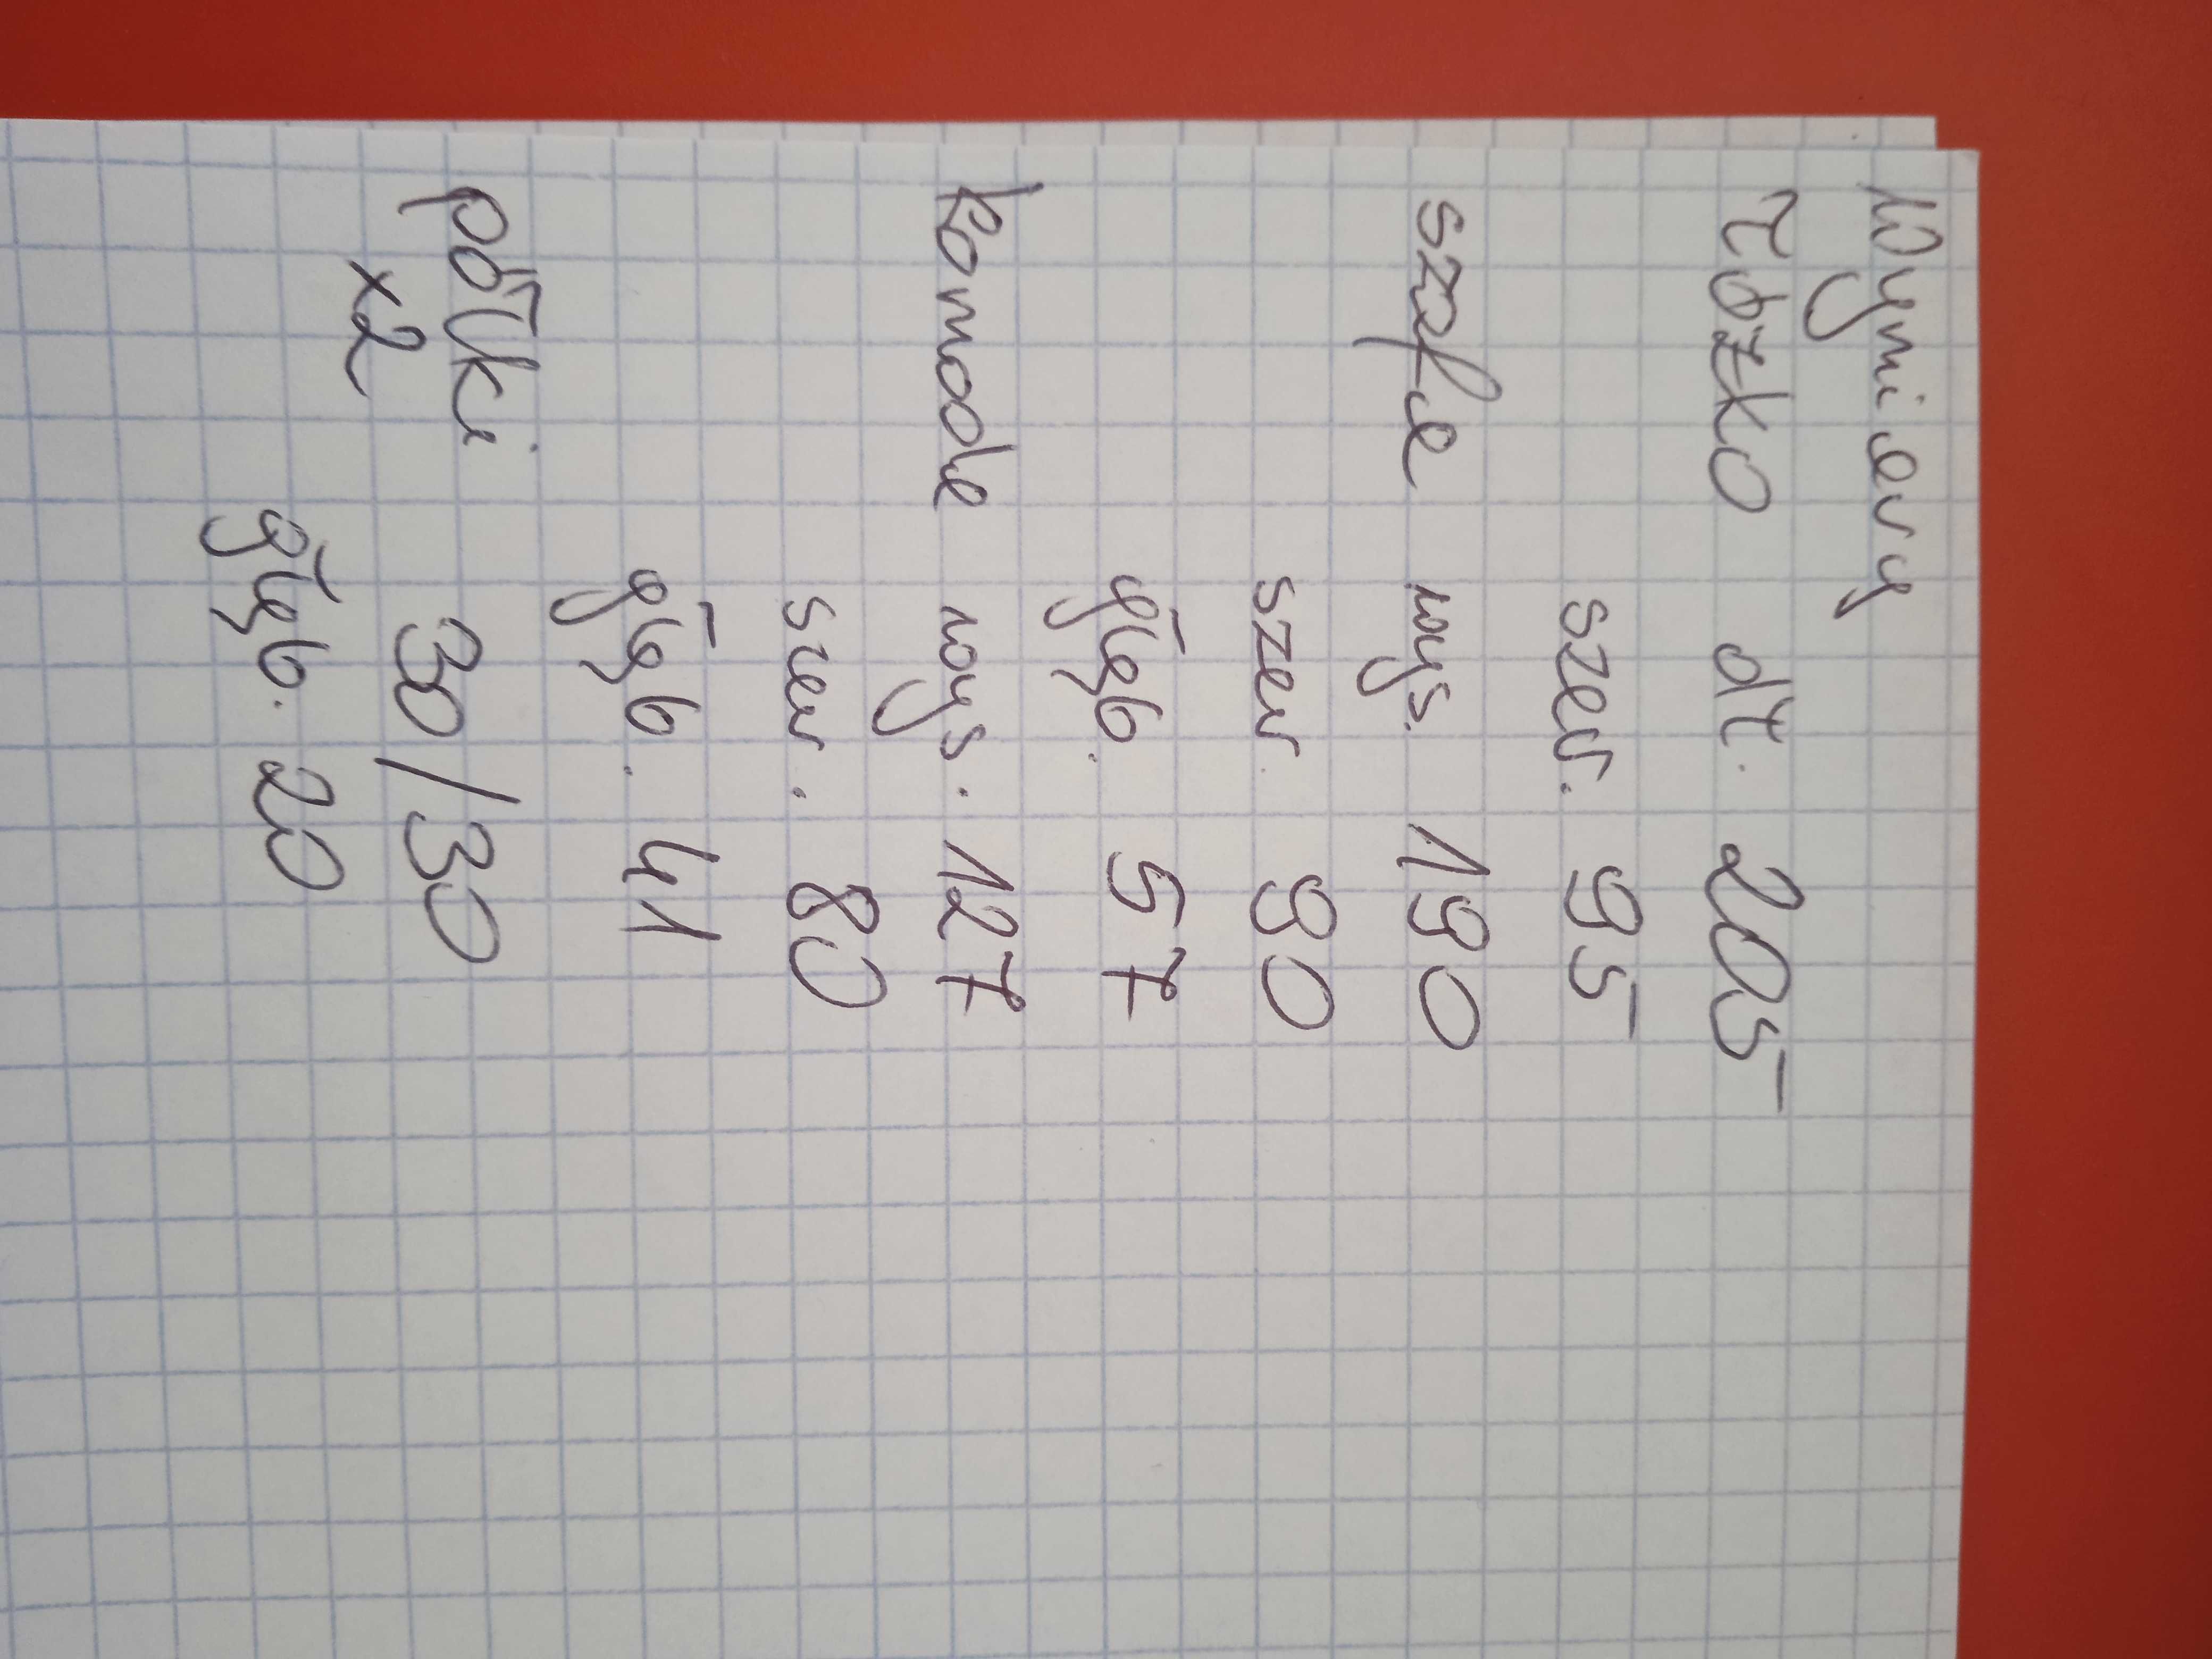 Wymiary
łóżko dł. 205
szer. 95
szafa wys. 190
szer. 90
głęb. 57
komoda wys. 127
szer. 80
głęb. 41
półki
x2 30/30
głęb. 20